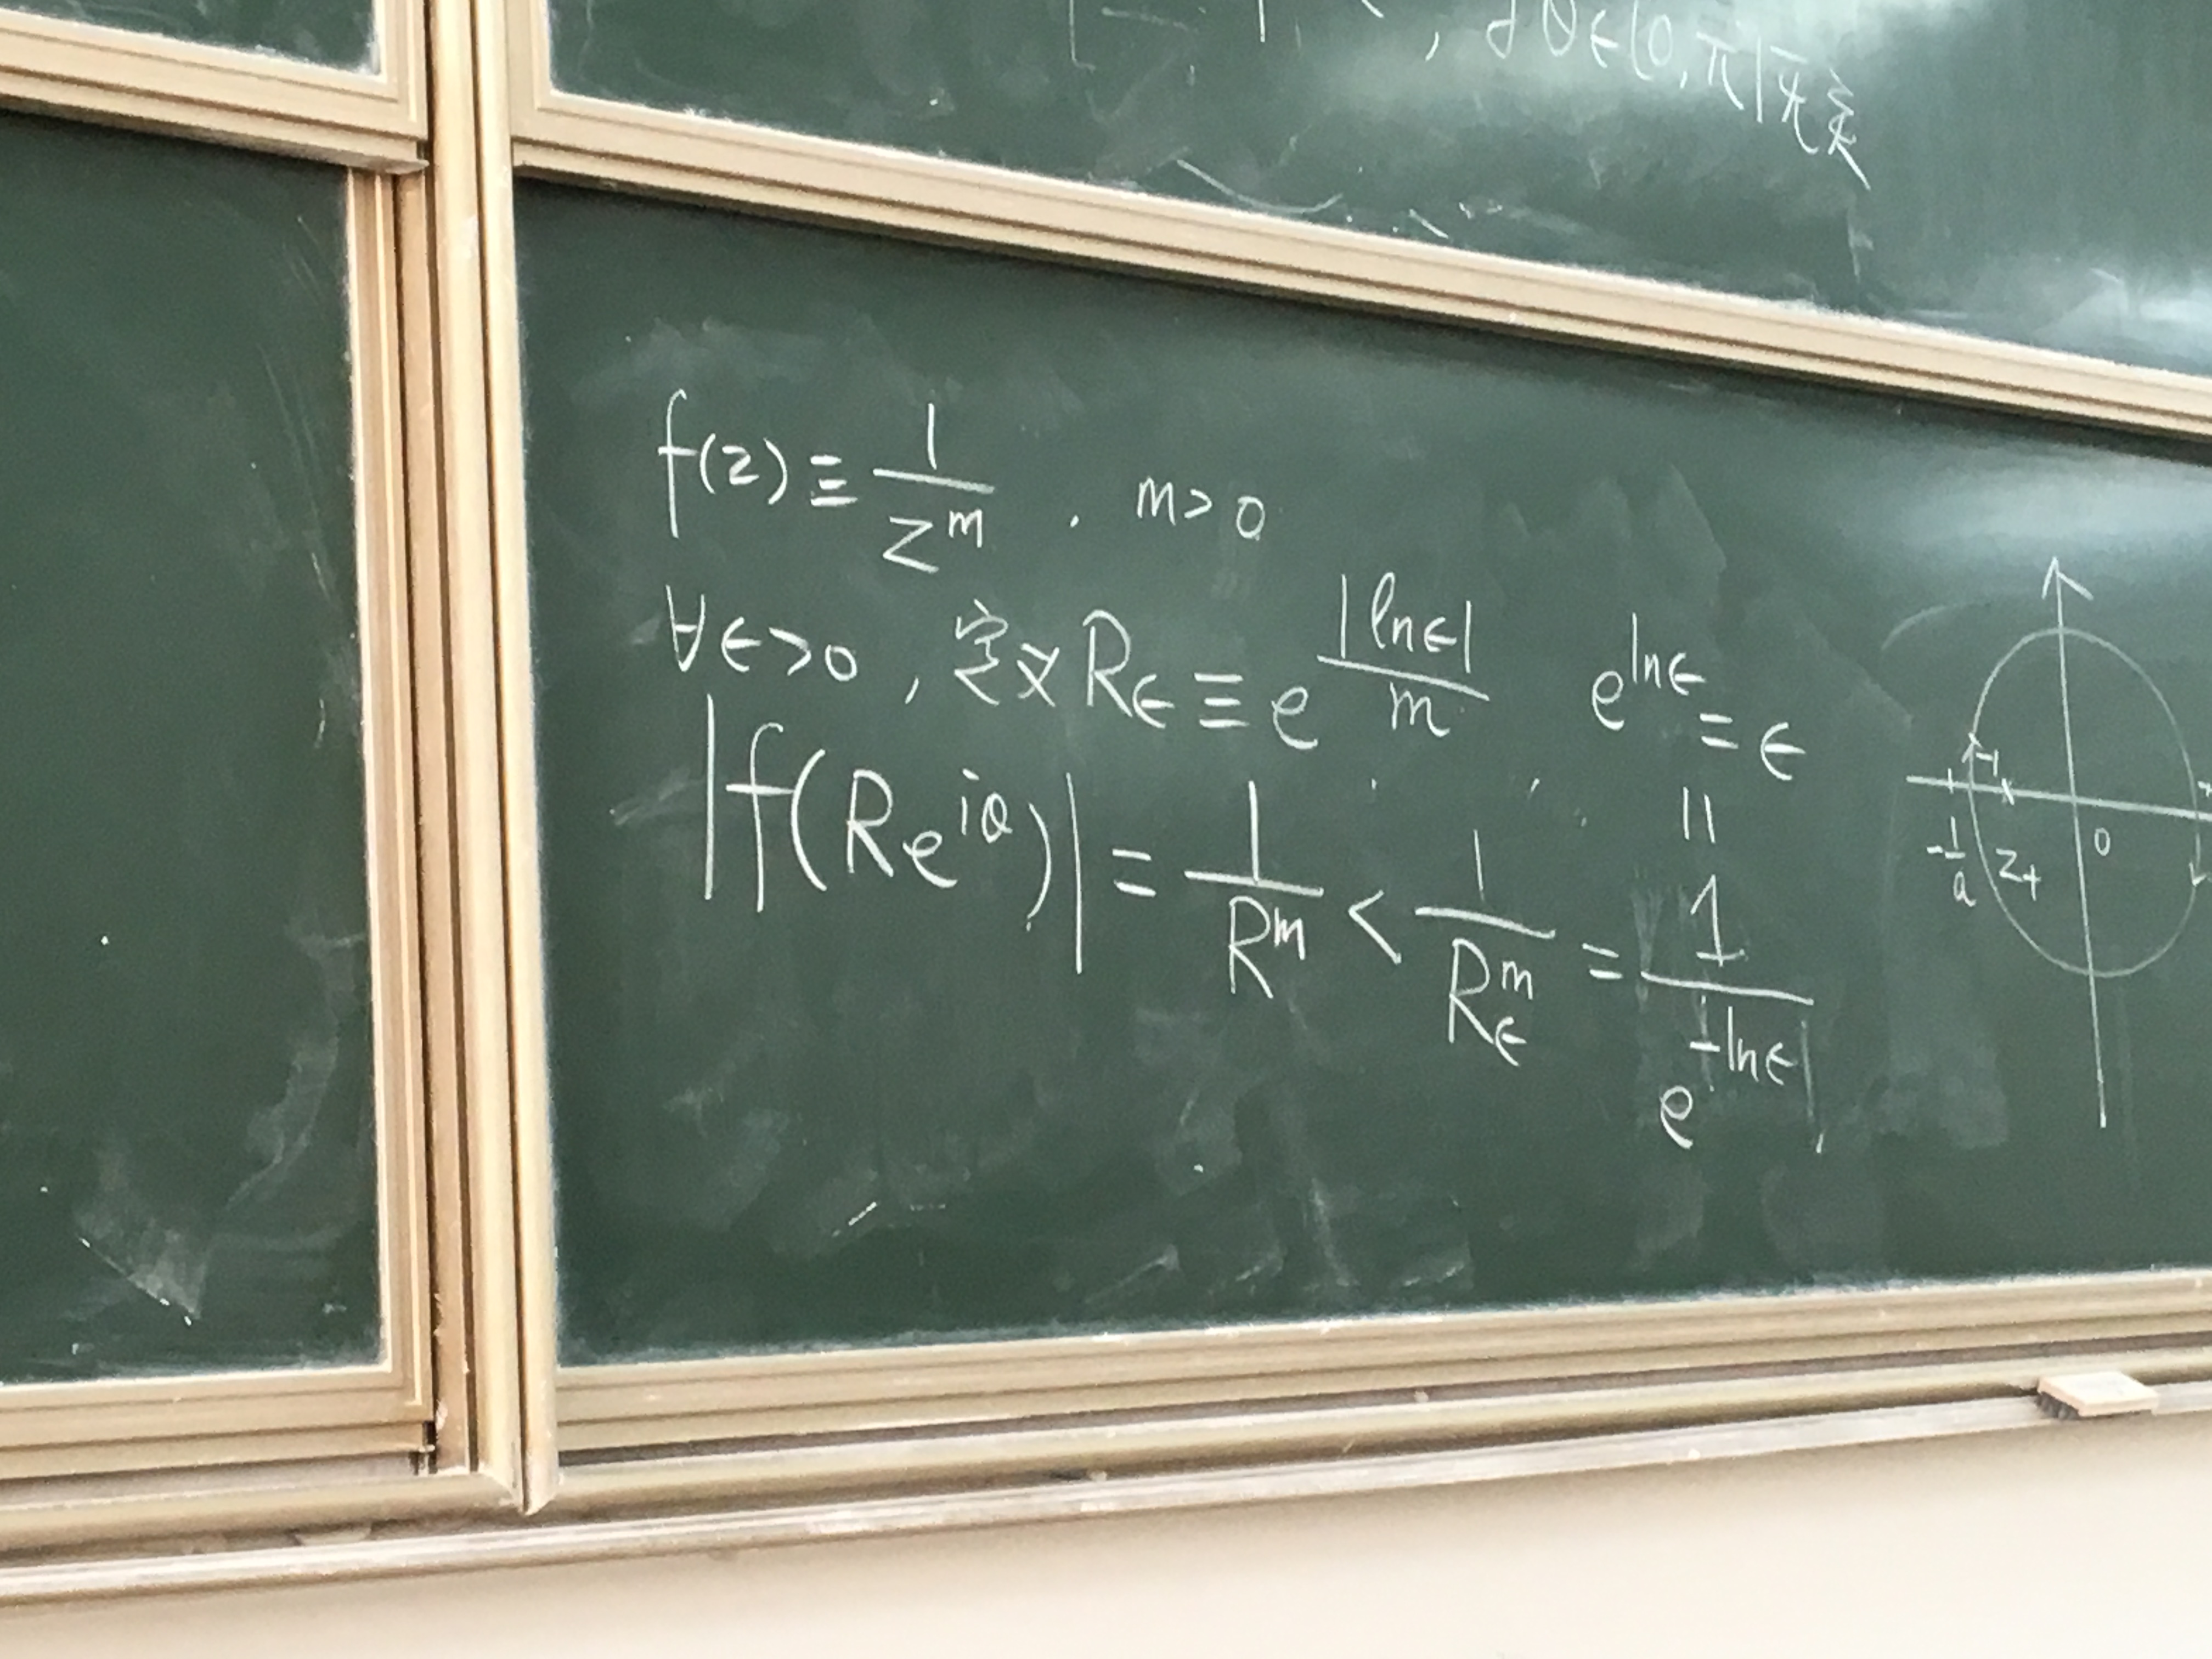 , 对θ∈[0,π]无关
f(z) ≡ 1/z^m , m>0
∀ϵ>0 , 定义 R_ϵ ≡ e^{|lnϵ|/m} e^{lnϵ} = ϵ
|f(Re^{iθ})| = 1/R^m < 1/R_ϵ^m = 1/e^{|-lnϵ|}
=
-1
-1/a z+ 0